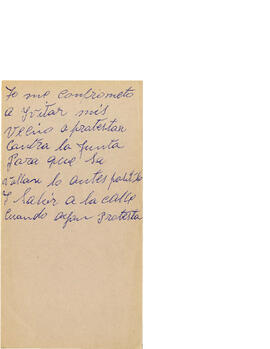 Yo me contrometo
a Ivitar mis
Vecino a protestar
Contra la Junta
Para que se
Vallan lo antes posible
Y Salir a la calle
Cuando aigan Protesta